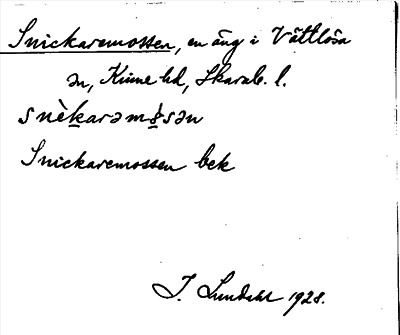 Snickaremossen, en äng i Vättlösa
sn, Kinne hd, Skarab. l.
snèkarəmɷ̀sən
Snickaremossen bek
I. Lundahl 1928.